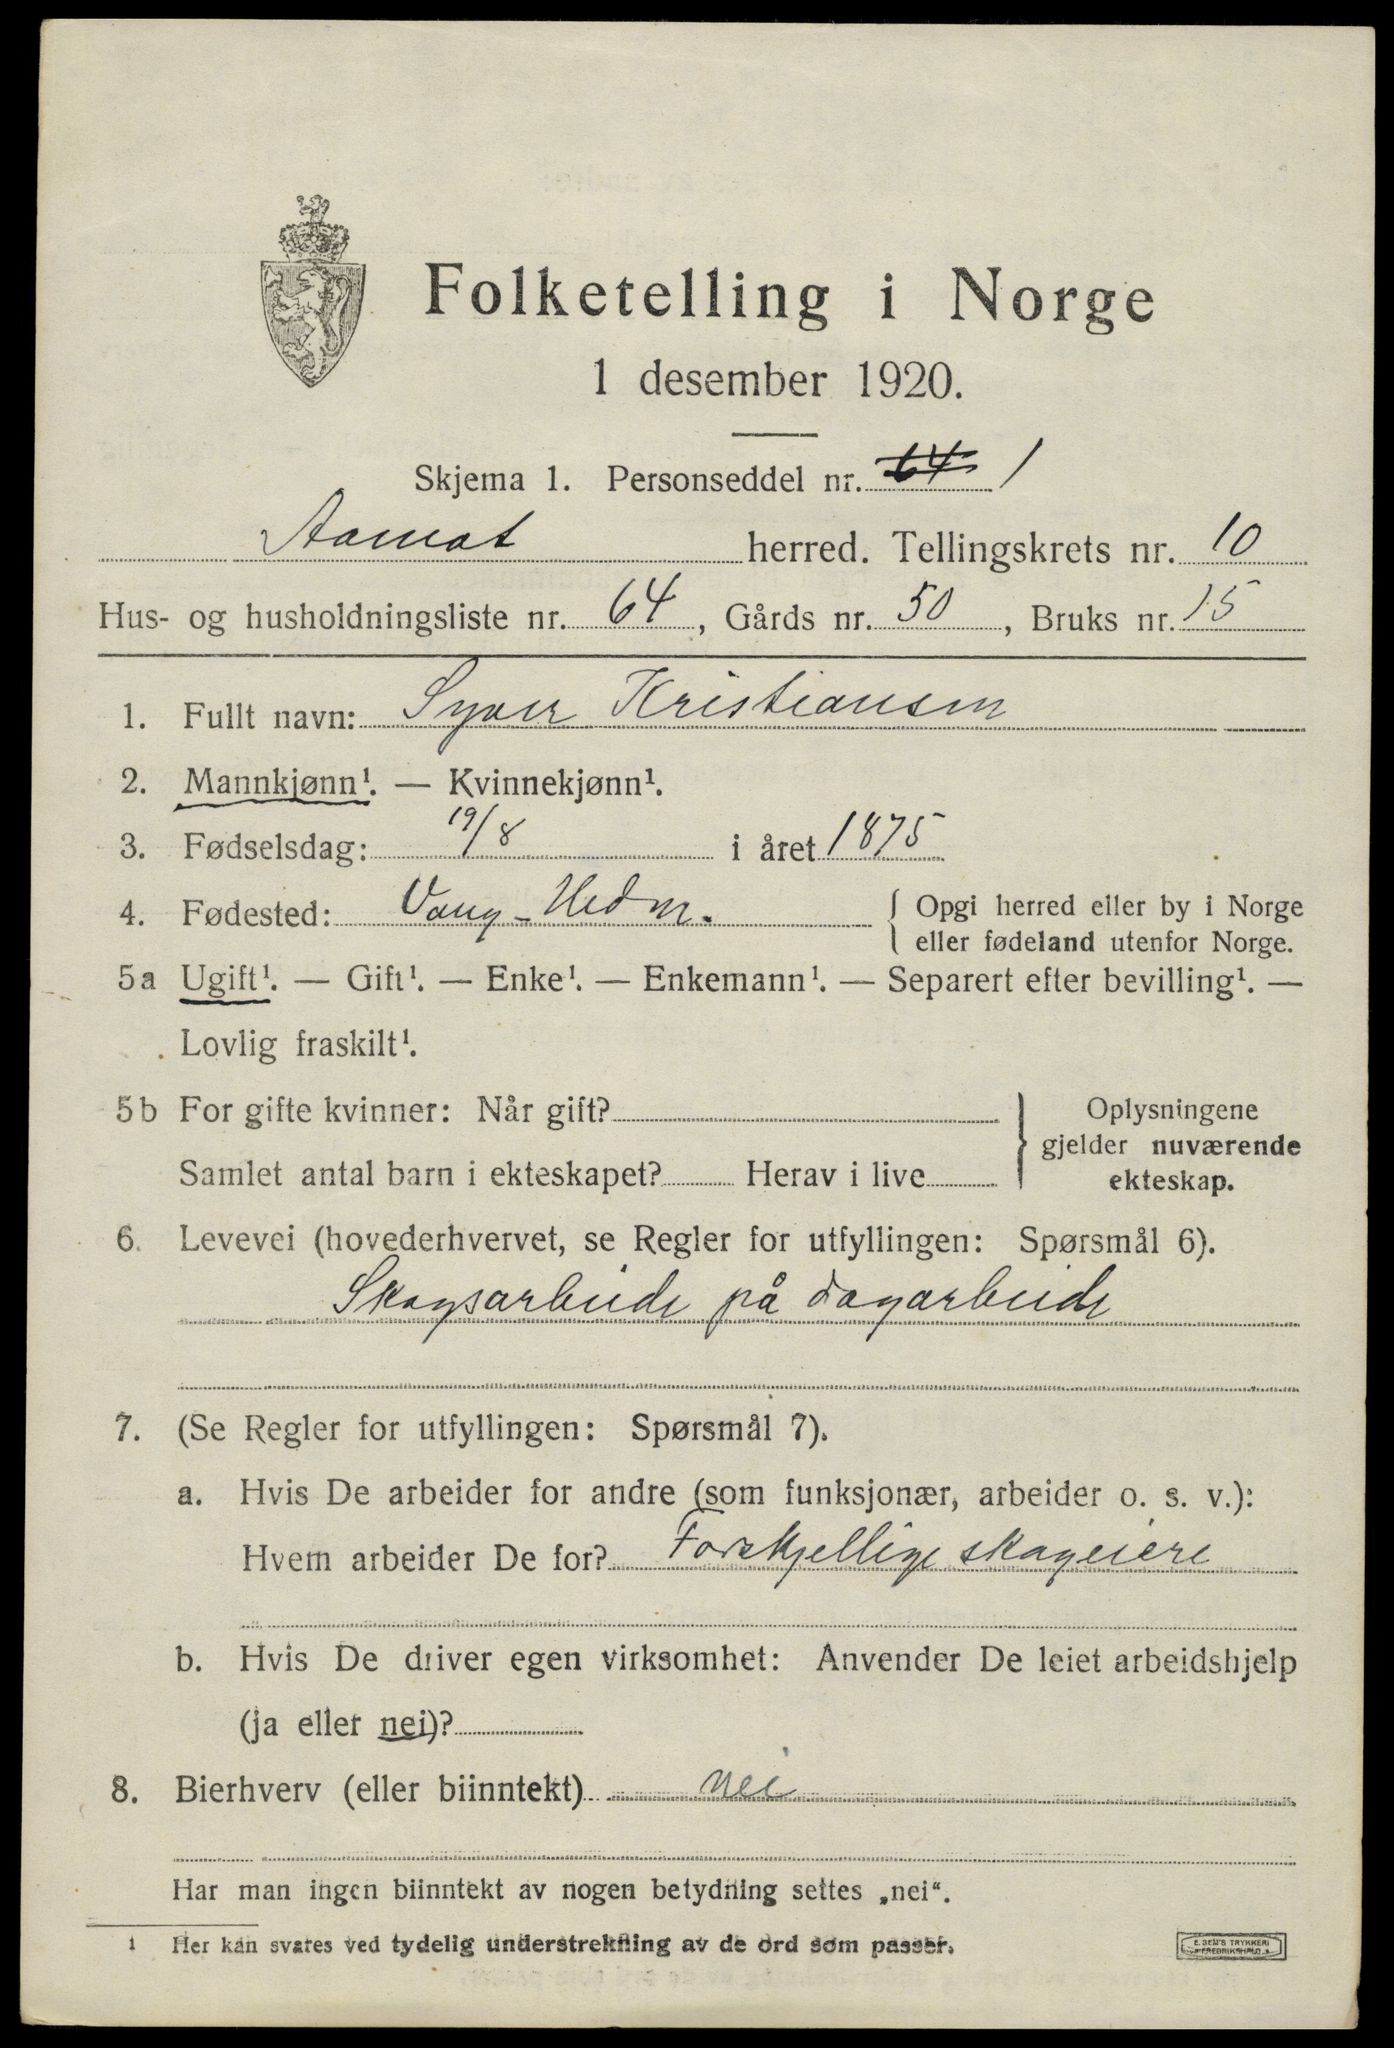 Folketelling i Norge
1 desember 1920.
Skjema 1. Personseddel nr. 64 1
Aamot herred. Tellingskrets nr. 10
Hus- og husholdningsliste nr. 64, Gårds nr. 50, Bruks nr. 15
1. Fullt navn: Syver Kristiansen
2. Mannkjønn¹. — Kvinnekjønn¹.
3. Fødselsdag: 19/8 i året 1875
4. Fødested: Vang - Hedm. { Opgi herred eller by i Norge
eller fødeland utenfor Norge.
5a Ugift¹. — Gift¹. — Enke¹. — Enkemann¹. — Separert efter bevilling¹. —
Lovlig fraskilt¹.
5b For gifte kvinner: Når gift? } Oplysningene
gjelder nuværende
Samlet antal barn i ekteskapet? Herav i live ekteskap.
6. Levevei (hovederhvervet, se Regler for utfyllingen: Spørsmål 6).
Skogsarbeide på dagarbeide
7. (Se Regler for utfyllingen: Spørsmål 7).
a. Hvis De arbeider for andre (som funksjonær, arbeider o. s. v.):
Hvem arbeider De for? Forskjellige skogeiere
b. Hvis De driver egen virksomhet: Anvender De leiet arbeidshjelp
(ja eller nei)?
8. Bierhverv (eller biinntekt) nei
Har man ingen biinntekt av nogen betydning settes „nei“.
¹ Her kan svares ved tydelig understrekning av de ord som passer.
E. SEM'S TRYKKERI
FREDRIKSHALD